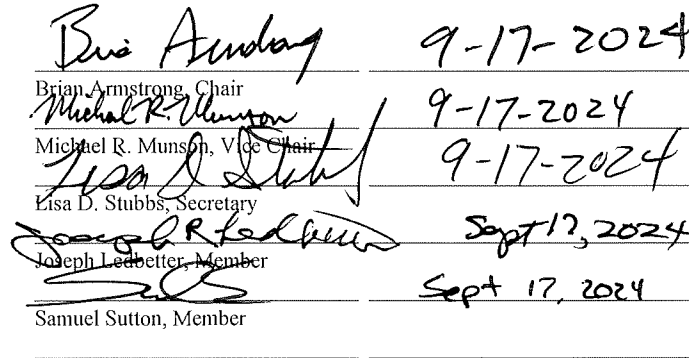 Brian Armstrong 9-17-2024
Brian Armstrong, Chair
Michael R. Munson 9-17-2024
Michael R. Munson, Vice Chair
Lisa D Stubbs 9-17-2024
Lisa D. Stubbs, Secretary
Joseph R Ledbetter Sept 17, 2024
Joseph Ledbetter, Member
Sept 17, 2024
Samuel Sutton, Member